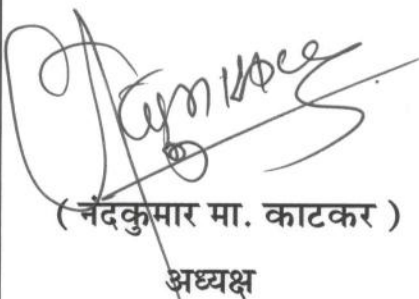 ( नंदकुमार मा. काटकर )
अध्यक्ष